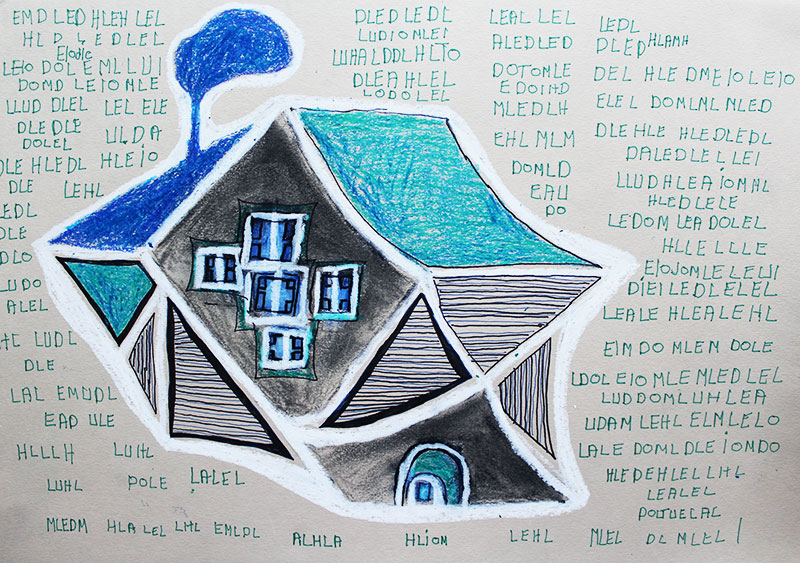 EMDLED HLEH LEL
HLD LEDLEL
Elodie
LEIO DOLE MLLUI
DOMD LEIONLE
LLUD DLEL LEL ELE
DLEDLE
DOLEL ULDA
DLE HLEDL HLEIO
DLE LEHL
LEDL
DLE
DLO
LUDO
ALEL
LUDL
DLE
LAL EMUDL
EAD ULE
HLLLH LUHL
LUHL POLE LALEL
DLED LEDL
LUDIOMLEL
WHALDDLHLTO
DLEAHLEL
LODOLEL
LEAL LEL
ALEDLED
DOTONLE
EDOIHD
MLEDLH
EHL MLM
DOMLD
EAU
PO
LEDL
DLED HLAMH
DEL HLEDMEIOLEIO
ELEL DOMLML MLED
DLE HLE HLEDLEDL
DALEDLEL LEI
LLUDHLEAIOMHL
HLEDLELE
LEDOM LEA DOLEL
HLLE LLLE
EIOJOMLE LELUI
DIEILEDLELEL
LEALE HLEALEHL
EIMDO MLEM DOLE
LDOLEIO MLEMLEDLEL
LUDDOMLUHLEA
UDAM LEHL ELMLELO
LALE DOMLDLE IONDO
HLEDEHLELLHL
LEALEL
MLEDM HLA LEL LHL EMLDL ALHLA HLIOM LEHL MLEL MLEL